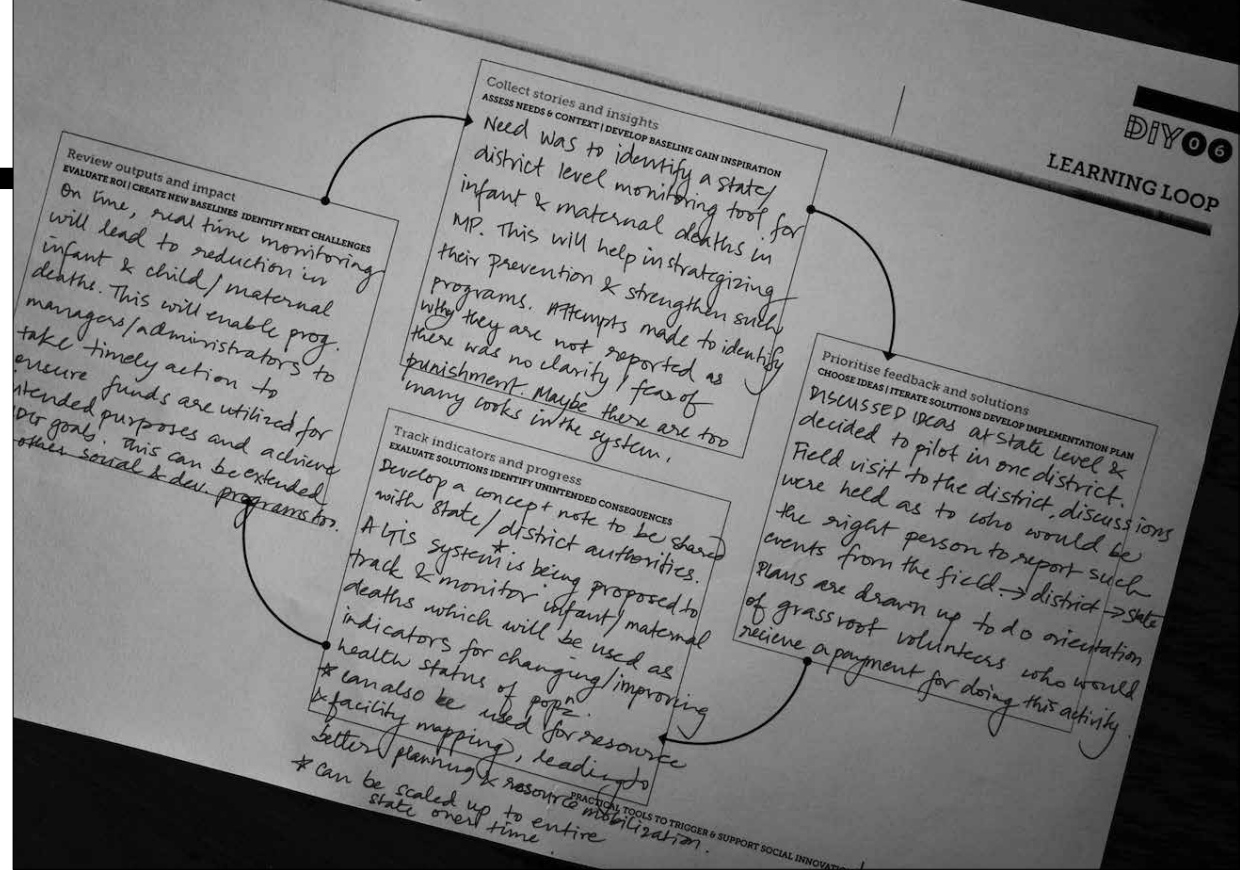 DIY 06
LEARNING LOOP
Collect stories and insights
ASSESS NEEDS & CONTEXT | DEVELOP BASELINE GAIN INSPIRATION
Need was to identify a state/
district level monitoring tool for
infant & maternal deaths in
MP. This will help in strategizing
their prevention & strengthen such
programs. Attempts made to identify
why they are not reported as
there was no clarity / fear of
punishment. Maybe there are too
many cooks in the system.
Prioritise feedback and solutions
CHOOSE IDEAS | ITERATE SOLUTIONS DEVELOP IMPLEMENTATION PLAN
DISCUSSED IDEAS at State level &
decided to pilot in one district.
Field visit to the district, discussions
were held as to who would be
the right person to report such
events from the field → district → state
Plans are drawn up to do orientation
of grassroot volunteers who would
recieve a payment for doing this activity.
Track indicators and progress
EXALUATE SOLUTIONS IDENTIFY UNINTENDED CONSEQUENCES
Develop a concept note to be shared
with State/district authorities.
A GIS system* is being proposed to
track & monitor infant/maternal
deaths which will be used as
indicators for changing/improving
health status of popn.
* can also be used for resource
& facility mapping, leading to
better planning & resource mobilization.
* can be scaled up to entire
state over time.
Review outputs and impact
EVALUATE ROI | CREATE NEW BASELINES IDENTIFY NEXT CHALLENGES
On time, real time monitoring
will lead to reduction in
infant & child/maternal
deaths. This will enable prog.
managers/administrators to
take timely action to
ensure funds are utilized for
intended purposes and achieve
goals. This can be extended
other social & dev. programs too.
PRACTICAL TOOLS TO TRIGGER & SUPPORT SOCIAL INNOVATI